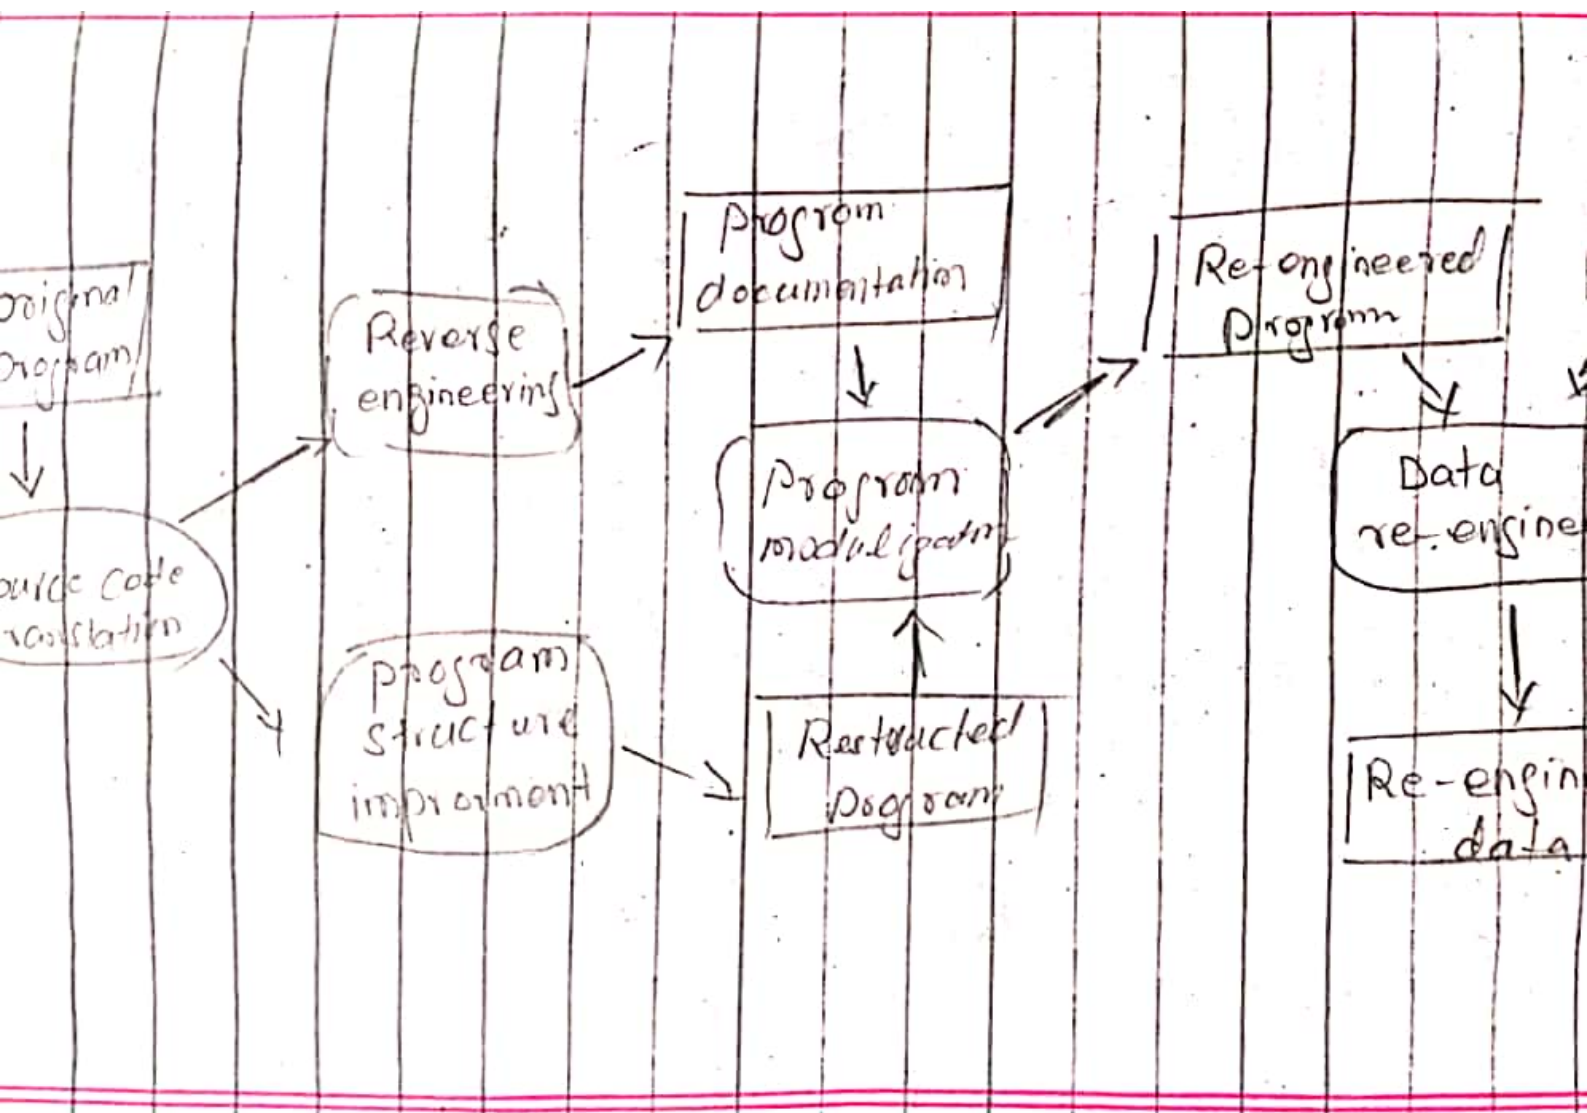 original
program
ource code
ranslation
Reverse
engineering
program
structure
improvment
program
documentation
program
modulization
Restructed
program
Re-engineered
program
Data
re-engine
Re-engin
data